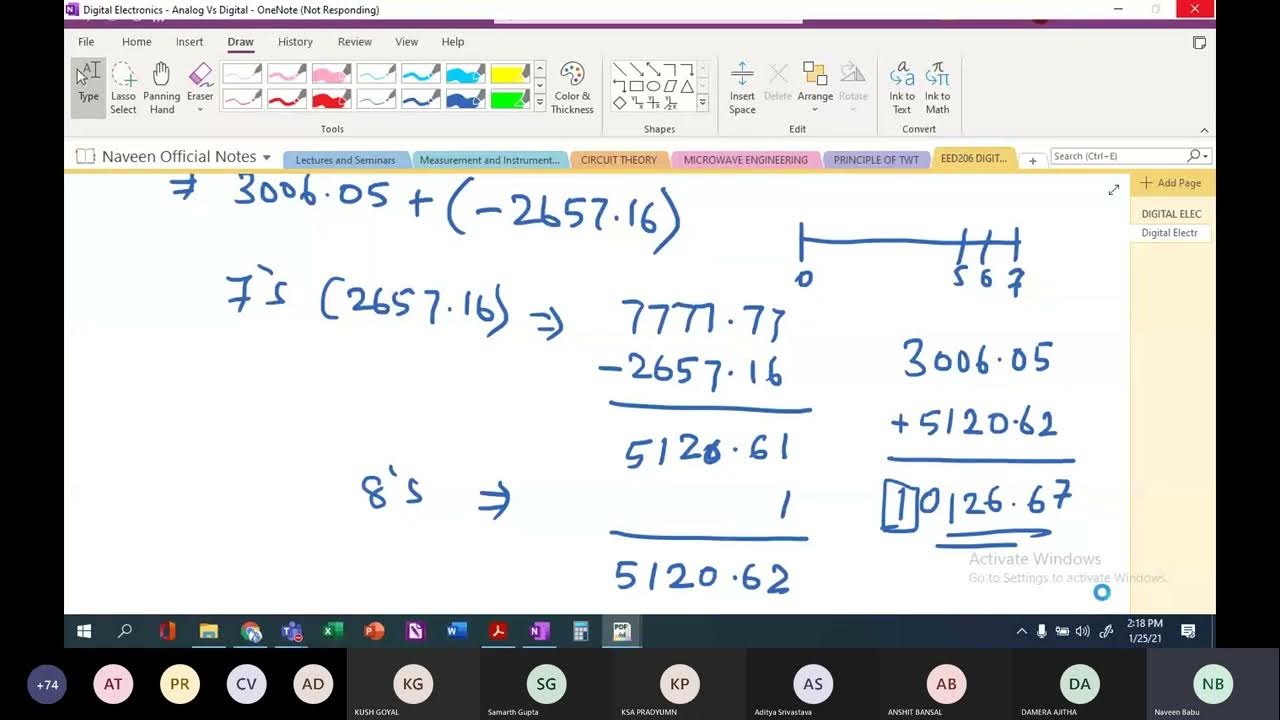 Digital Electronics - Analog Vs Digital - OneNote (Not Responding)
File Home Insert Draw History Review View Help
Type Lasso Select Panning Hand Eraser Color & Thickness Insert Space Delete Arrange Rotate Ink to Text Ink to Math
Tools Shapes Edit Convert
Naveen Official Notes Lectures and Seminars Measurement and Instrument... CIRCUIT THEORY MICROWAVE ENGINEERING PRINCIPLE OF TWT EED206 DIGIT... Search (Ctrl+E)
Add Page
DIGITAL ELEC
Digital Electr
⇒ 3006.05 + (-2657.16)
0 5 6 7
7's (2657.16) ⇒ 7777.77
-2657.16
5120.61
8's ⇒ 1
5120.62
3006.05
+5120.62
10126.67
Activate Windows
Go to Settings to activate Windows.
2:18 PM
1/25/21
+74 AT PR CV AD KG SG KP AS AB DA NB
KUSH GOYAL Samarth Gupta KSA PRADYUMN Aditya Srivastava ANSHIT BANSAL DAMERA AJITHA Naveen Babu